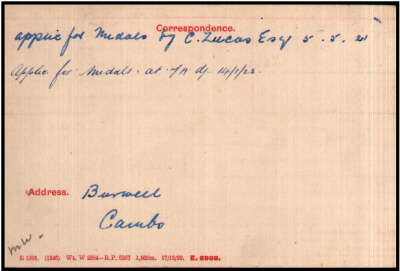 Correspondence.
applic for Medals by C. Lucas Esqr 5. 5. 21
Applic for Medals. at 14/1/22.
Address. Burwell
Cambs
E 1801. (1846) Wt. W 2284—R.P. 6267 1,000m. 17/12/20. E. 6989.